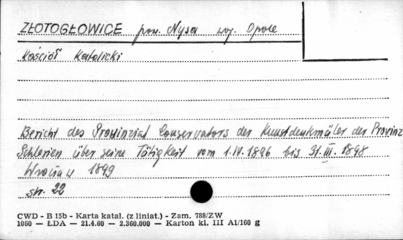 ZŁOTOGŁOWICE pow. Nysa woj. Opole
Kościół Katolicki
Bericht des Provinzial Conservators der Kunstdenkmäler der Provinz
Schlesien über seine Tätigkeit vom 1.IV.1896 bis 31.III.1898
Wrocław 1899
str. 22
CWD - B 15b - Karta katal. (z liniat.) - Zam. 788/ZW
1060 — ŁDA — 21.4.60 — 2.360.000 — Karton kl. III A1/160 g